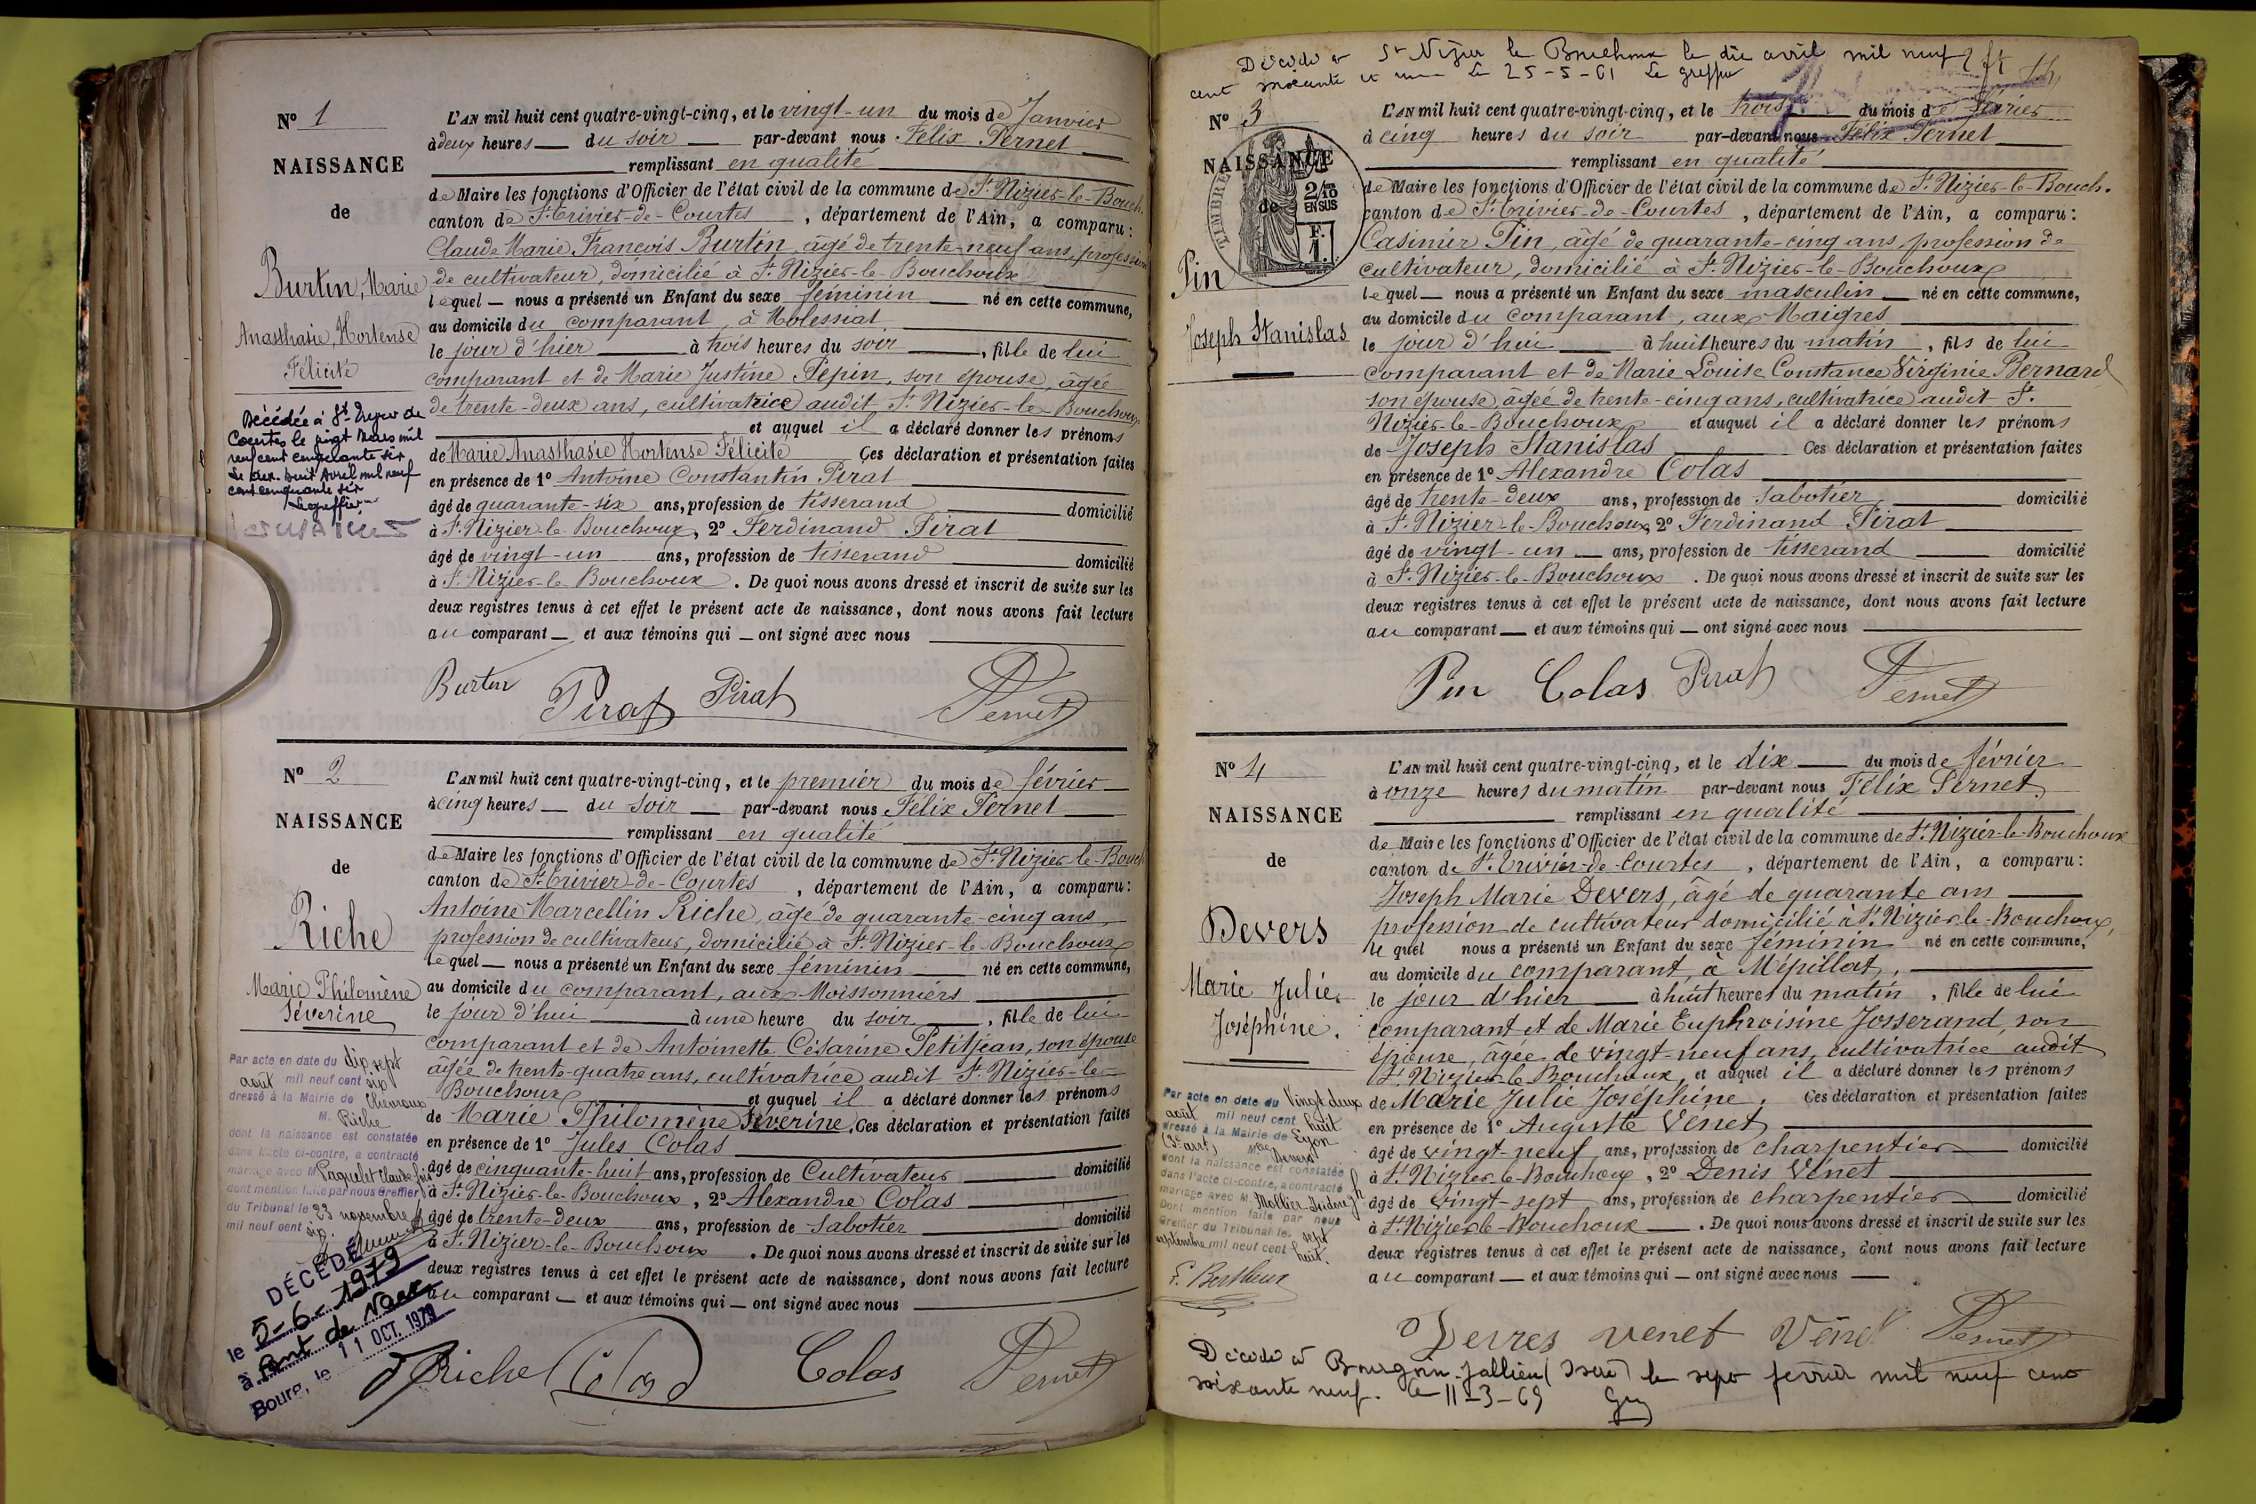 N° 1
NAISSANCE
de
Burtin, Marie
Anasthasie, Hortense
Félicité
Décédée à St
Courtes le vingt Mars mil
neuf cent cinquante six
Le dix-huit Avril mil neuf
cent cinquante six
Le greffier
L'AN mil huit cent quatre-vingt-cinq, et le vingt-un du mois de Janvier
à deux heures du soir par-devant nous Félix Pernet
remplissant en qualité
de Maire les fonctions d'Officier de l'état civil de la commune de St. Nizier-le-Bouch.
canton de St. Trivier-de-Courtes, département de l'Ain, a comparu :
Claude Marie François Burtin, âgé de trente-neuf ans, profession
de cultivateur, domicilié à St. Nizier-le-Bouchoux
lequel nous a présenté un Enfant du sexe féminin né en cette commune,
au domicile du comparant, à Molessiat,
le jour d'hier à trois heures du soir, fille de lui
comparant et de Marie Justine Pépin, son épouse, âgée
de trente-deux ans, cultivatrice audit St. Nizier-le-Bouchoux,
et auquel il a déclaré donner les prénoms
de Marie Anasthasie Hortense Félicité Ces déclaration et présentation faites
en présence de 1° Antoine Constantin Pirat
âgé de quarante-six ans, profession de tisserand domicilié
à St. Nizier-le-Bouchoux, 2° Ferdinand Pirat
âgé de vingt-un ans, profession de tisserand domicilié
à St. Nizier-le-Bouchoux. De quoi nous avons dressé et inscrit de suite sur les
deux registres tenus à cet effet le présent acte de naissance, dont nous avons fait lecture
au comparant et aux témoins qui ont signé avec nous
Burtin Pirat Pirat Pernet
N° 2
NAISSANCE
de
Riche
Marie Philomène
Séverine
Par acte en date du dix sept
août mil neuf cent six
dressé à la Mairie de Chevroux
M. Riche
dont la naissance est constatée
dans l'acte ci-contre, a contracté
mariage avec M. Paquelet Claude
dont mention faite par nous Greffier
du Tribunal le 23 novembre
mil neuf cent six.
DÉCÉDÉ
le 5-6-1979
à Pont de Vaux
Bourg, le 11 OCT. 1979
L'AN mil huit cent quatre-vingt-cinq, et le premier du mois de février
à cinq heures du soir par-devant nous Félix Pernet
remplissant en qualité
de Maire les fonctions d'Officier de l'état civil de la commune de St. Nizier-le-Bouch
canton de St. Trivier-de-Courtes, département de l'Ain, a comparu :
Antoine Marcellin Riche, âgé de quarante-cinq ans,
profession de cultivateur, domicilié à St. Nizier-le-Bouchoux
lequel nous a présenté un Enfant du sexe féminin né en cette commune,
au domicile du comparant, aux Moissonniers
le jour d'hui à une heure du soir, fille de lui
comparant et de Antoinette Césarine Petitjean, son épouse
âgée de trente-quatre ans, cultivatrice audit St. Nizier-le-
Bouchoux et auquel il a déclaré donner les prénoms
de Marie Philomène Séverine. Ces déclaration et présentation faites
en présence de 1° Jules Colas
âgé de cinquante-huit ans, profession de Cultivateur domicilié
à St. Nizier-le-Bouchoux, 2° Alexandre Colas
âgé de trente-deux ans, profession de sabotier domicilié
à St. Nizier-le-Bouchoux. De quoi nous avons dressé et inscrit de suite sur les
deux registres tenus à cet effet le présent acte de naissance, dont nous avons fait lecture
au comparant et aux témoins qui ont signé avec nous
Riche Colas Colas Pernet
Décédé à St Nizier le Bouchoux le dix avril mil neuf
cent soixante et un Le 25-5-61 Le greffier
N° 3
NAISSANCE
de
TIMBRE
2/10
EN SUS
F.
1.
Pin
Joseph Stanislas
L'AN mil huit cent quatre-vingt-cinq, et le trois du mois de février
à cinq heures du soir par-devant nous Félix Pernet
remplissant en qualité
de Maire les fonctions d'Officier de l'état civil de la commune de St. Nizier-le-Bouch.
canton de St. Trivier-de-Courtes, département de l'Ain, a comparu :
Casimir Pin, âgé de quarante-cinq ans, profession de
cultivateur, domicilié à St. Nizier-le-Bouchoux
lequel nous a présenté un Enfant du sexe masculin né en cette commune,
au domicile du comparant, aux Maigres
le jour d'hui à huit heures du matin, fils de lui
comparant et de Marie Louise Constance Virginie Bernard
son épouse âgée de trente-cinq ans, cultivatrice audit St.
Nizier-le-Bouchoux et auquel il a déclaré donner les prénoms
de Joseph Stanislas Ces déclaration et présentation faites
en présence de 1° Alexandre Colas
âgé de trente-deux ans, profession de sabotier domicilié
à St. Nizier-le-Bouchoux, 2° Ferdinand Pirat
âgé de vingt-un ans, profession de tisserand domicilié
à St. Nizier-le-Bouchoux. De quoi nous avons dressé et inscrit de suite sur les
deux registres tenus à cet effet le présent acte de naissance, dont nous avons fait lecture
au comparant et aux témoins qui ont signé avec nous
Pin Colas Pirat Pernet
N° 4
NAISSANCE
de
Devers
Marie Julie
Joséphine.
Par acte en date du vingt deux
août mil neuf cent huit
dressé à la Mairie de Lyon
(3e arrt) Mlle Devers
dont la naissance est constatée
dans l'acte ci-contre, a contracté
mariage avec M. Mollier
Dont mention faite par nous
Greffier du Tribunal le sept
septembre mil neuf cent huit.
L'AN mil huit cent quatre-vingt-cinq, et le dix du mois de février
à onze heures du matin par-devant nous Félix Pernet
remplissant en qualité
de Maire les fonctions d'Officier de l'état civil de la commune de St. Nizier-le-Bouchoux
canton de St. Trivier-de-Courtes, département de l'Ain, a comparu :
Joseph Marie Devers, âgé de quarante ans
profession de cultivateur domicilié à St. Nizier-le-Bouchoux,
lequel nous a présenté un Enfant du sexe féminin né en cette commune,
au domicile du comparant, à Mépillat,
le jour d'hier à huit heures du matin, fille de lui
comparant et de Marie Euphroisine Josserand, son
épouse, âgée de vingt-neuf ans, cultivatrice audit
St. Nizier-le-Bouchoux, et auquel il a déclaré donner les prénoms
de Marie Julie Joséphine. Ces déclaration et présentation faites
en présence de 1° Auguste Venet
âgé de vingt-neuf ans, profession de charpentier domicilié
à St. Nizier-le-Bouchoux, 2° Denis Venet
âgé de vingt-sept ans, profession de charpentier domicilié
à St. Nizier-le-Bouchoux. De quoi nous avons dressé et inscrit de suite sur les
deux registres tenus à cet effet le présent acte de naissance, dont nous avons fait lecture
au comparant et aux témoins qui ont signé avec nous
Devres venet Venet Pernet
Décédée à Bourgoin-Jallieu (Isère) le sept février mil neuf cent
soixante neuf. Le 11-3-69